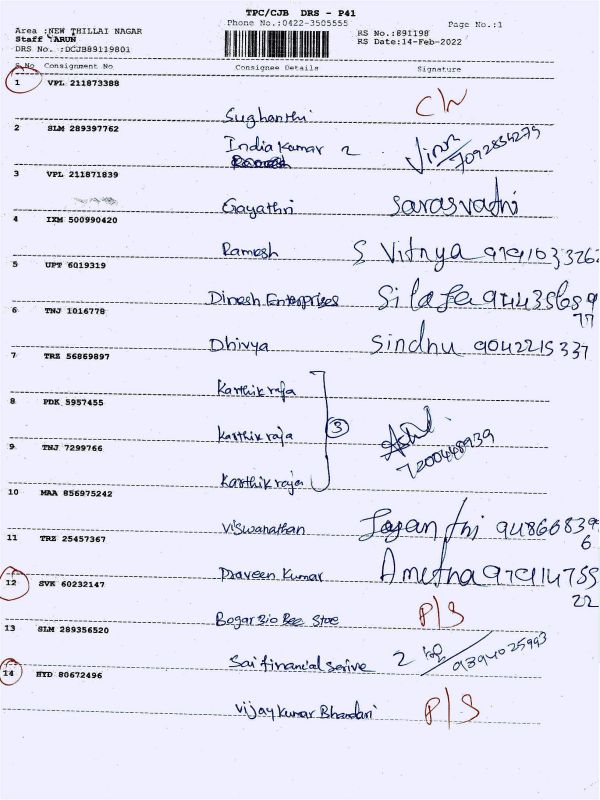 TPC/CJB DRS - P41
Phone No.:0422-3505555
Page No.:1
Area :NEW THILLAI NAGAR
RS No.:891198
Staff TARUN
RS Date:14-Feb-2022
DRS No. :DCJB89119801
S.No Consignment No Consignee Details Signature
1 VPL 211873388
Sughanthi
2 SLM 289397762
India Kumar 2 7092834275
3 VPL 211871839
Gayathri Sarasvathi
4 IXM 500990420
Ramesh S Vithya
5 UPT 6019319
Dinesh Enterprises
6 TNJ 1016778
Dhivya Sindhu 9042215337
7 TRZ 56869897
Karthik raja
8 PDK 5957455
Karthik raja 3
9 TNJ 7299766 7200448939
Karthik raja
10 MAA 856975242
Viswanathan
11 TRZ 25457367
Praveen Kumar
12 SVK 60232147
Bogar Bio Bee Stoe P/S
13 SLM 289356520
Sai financial Serive 2
14 HYD 80672496
Vijay Kumar Bhandari P/S